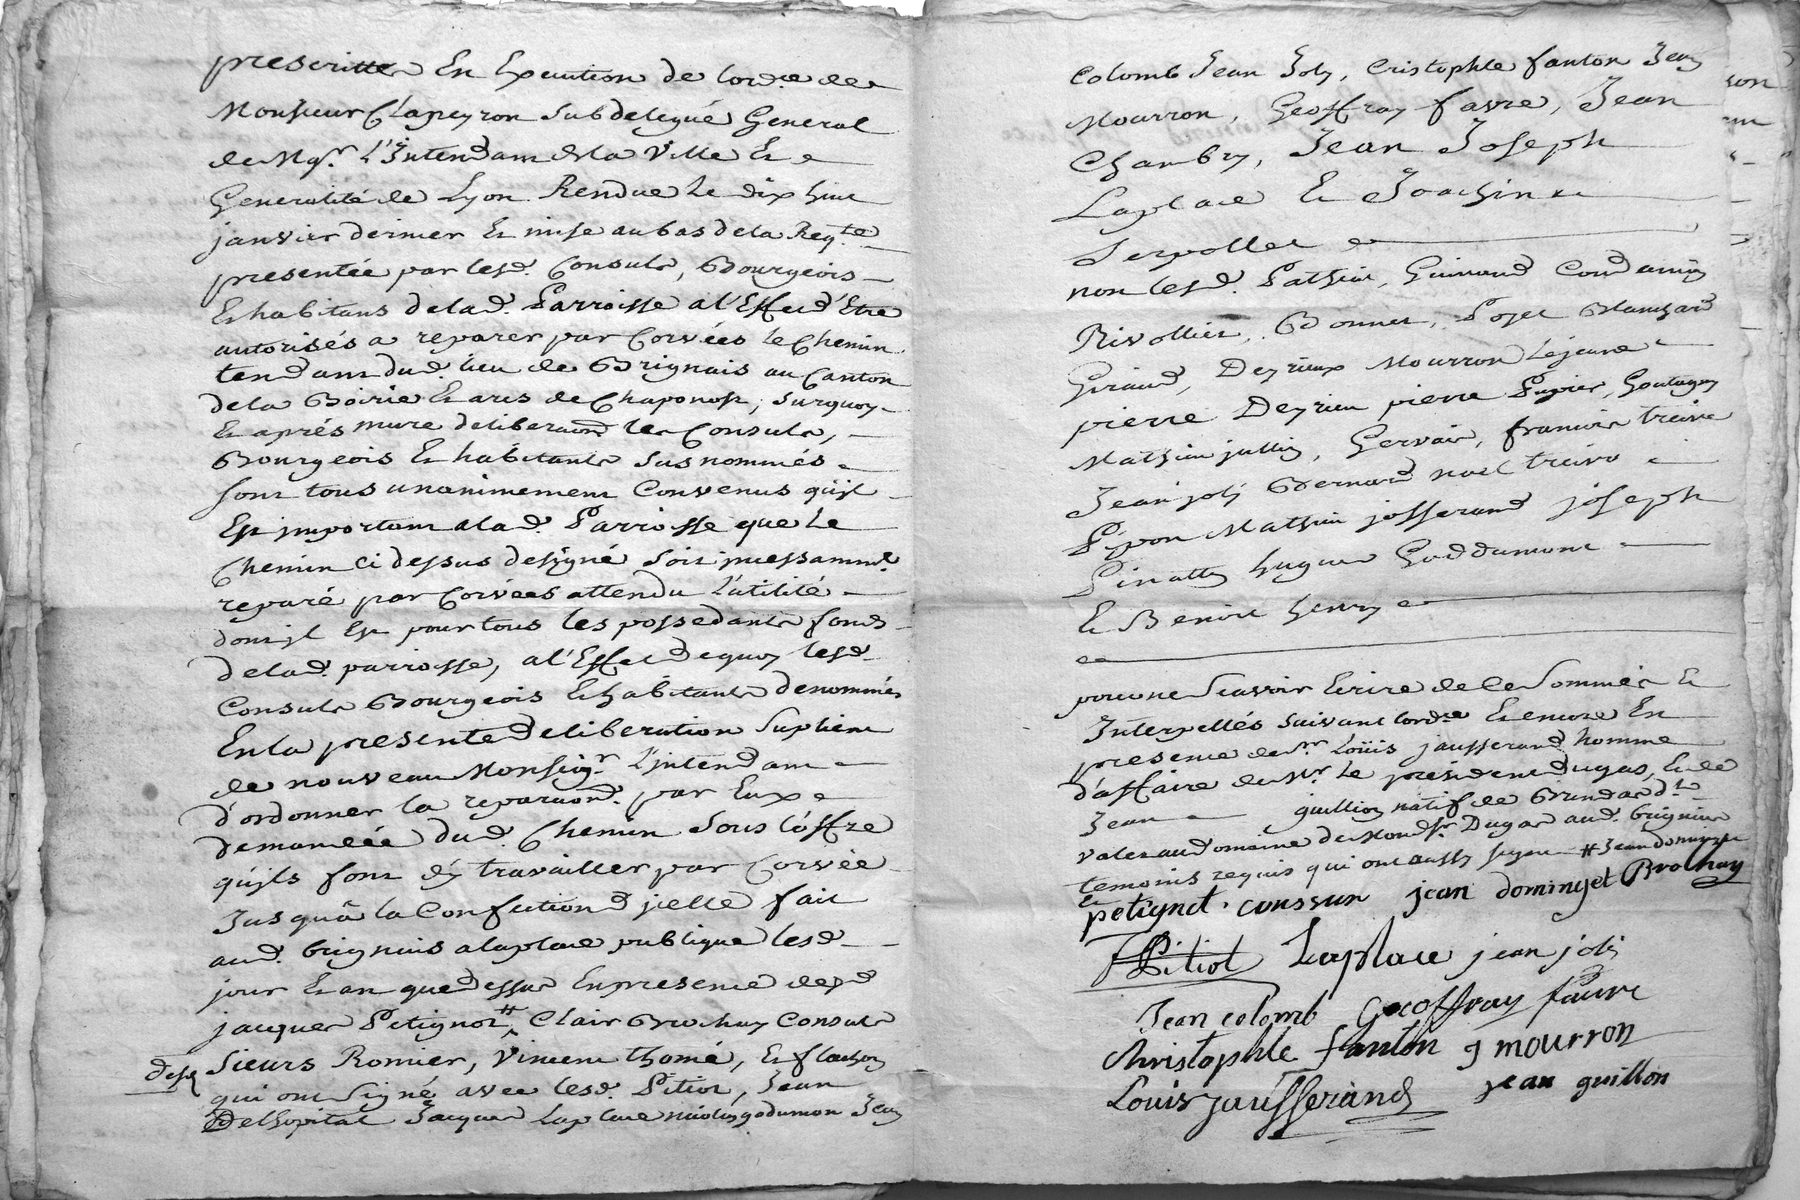 prescritte En Execution de lord.ce de
Monsieur Clapeyron Subdelegué General
de Mgr. L'Intendant de la Ville Et
Generalité de Lyon Rendue Le dix huit
janvier dernier Et mise au bas de la Reqte.
presentée par lesd. Consuls, Bourgeois
Et habitans de lad. Parroisse a l'Effet d'Etre
autorisés a reparer par Corvées Le Chemin
tendant dud. lieu de Brignais au Canton
de la Boirie Et ares de Chaponost, Surquoy
Et aprés mure deliberaond les Consuls,
Bourgeois Et habitants Susnommés
sont tous unanimement Convenus qu'jl
Est jmportant a lad. Parroisse que Le
Chemin ci dessus designé Soit jncessammt.
reparé par Corvées attendu L'utilité
dont jl Est pour tous les possedants fonds
de lad. parroisse, a l'Effet de quoy lesd.
Consuls Bourgeois Et habitants denommés
En la presente deliberation Suplient
de nouveau Monseigr. L'jntendant
d'ordonner la reparaond. par Eux
demandée dud. Chemin Sous L'offre
qu'jls font d'ÿ travailler par Corvée
Jusqu'à la Confection d'jcelle fait
aud. brignais a la place publique lesd.
jour Et an que dessus En presence desd
jacques Petignot #, Clair Brochay Consuls
Sieurs Romier, Vincent thomé, Et flachon
qui ont Signé avec lesd. Pitiot, Jean
Delhopital Jacques Laplace nicolas godumon Jean
Colomb Jean Joly, Cristophle fanton Jean
Mourron, Geoffray favre, Jean
Chambry, Jean Joseph
Laplace Et Joachin
Serpollet
non lesd. Mathieu, Guinand Condamin
Rivollier, Bonnet, Poyet Blanchard
Giraud, Deyrieux Mourron Lejeune
pierre Deyrieu pierre Pupier, Goutagny
Mathieu jullien, Gervais, francois treive
Jean joly Bernard noel treive
Pipon Mathieu josserand joseph
Pinatty hugues Goddumont
Et Benoit henry
pour ne Scavoir Ecrire de Ce Sommés Et
Interpellés Suivant lord.ce Et encore En
presence de Sr. Loüis jausserand homme
d'affaire de Mr. Le président dugas, Et de
Jean guillion natif de Brindas dt.
valet au domaine de Mond. Sr. Dugas aud. brignais
temoins requis qui ont aussy signé # Jean dominget
petignot · conssun jean dominget Brochay
Pitiot Laplace jean joli
Jean colomb Geoffray fauvre
Christophle fanton J mourron
Louis jausserand jean guillon